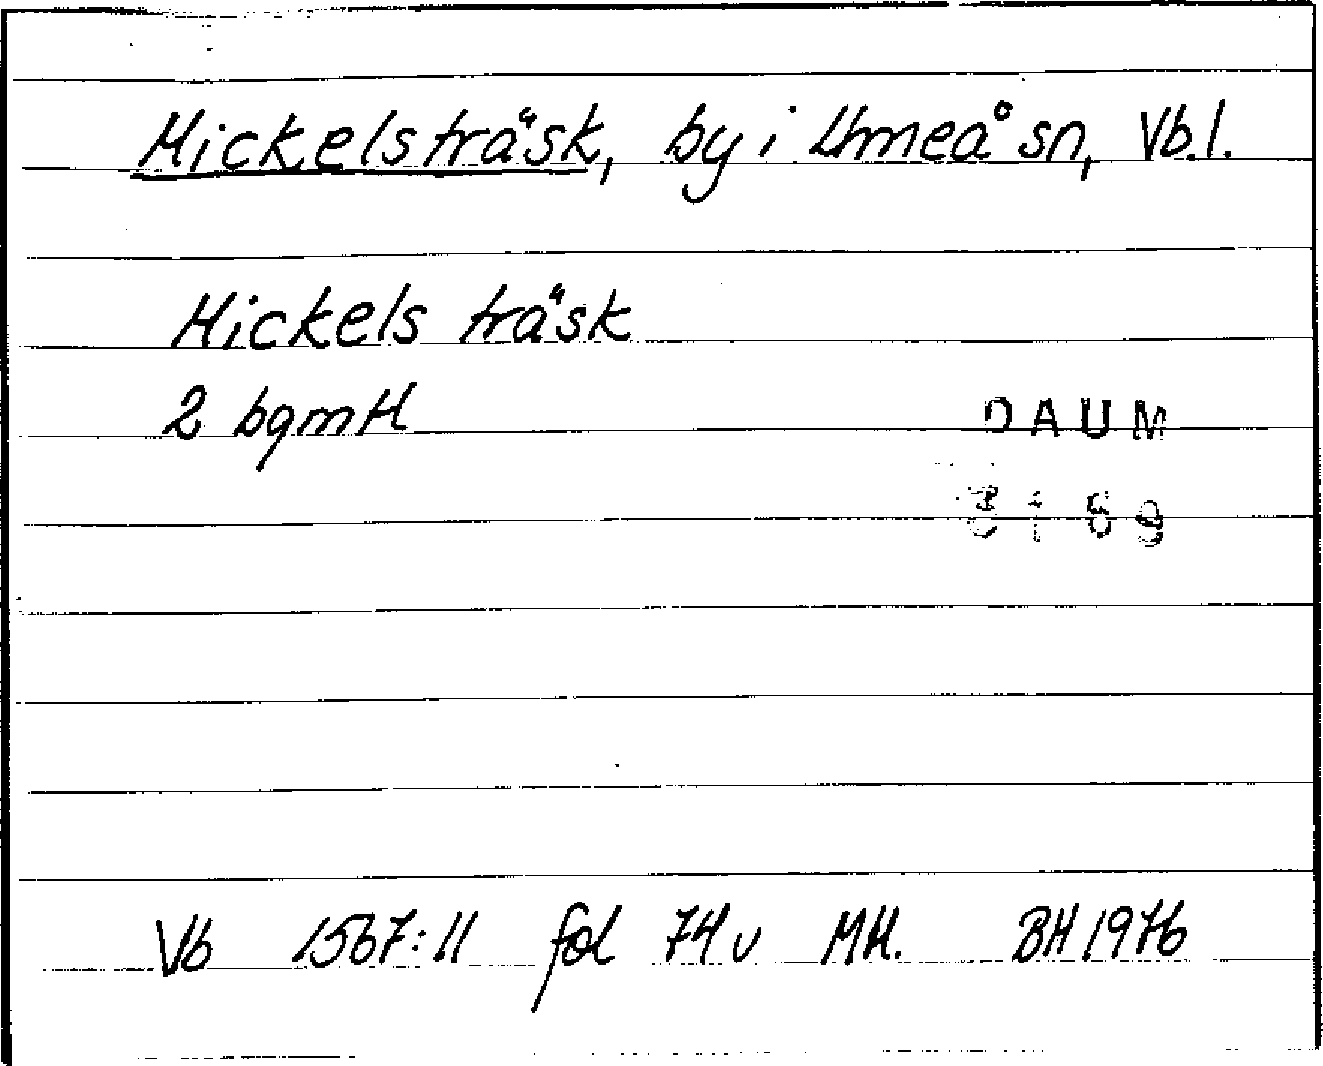 Mickelsträsk, by i Umeå sn, Vb.l.
Mickels träsk
2 bgmtl
DAUM
3159
Vb 1567:11 fol 74 v MH. BH 1976